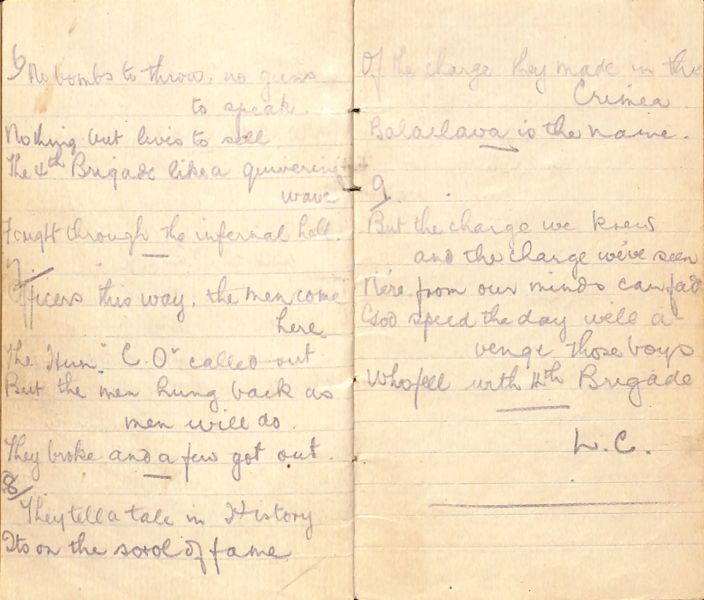 6
No bombs to throw, no guns
to speak.
Nothing but lives to sell
The 4th Brigade like a quivering
wave
Fought through the infernal hell.
7/
Officers this way, the men come
here.
The Hun "C.O" called out
But the men hung back as
men will do.
They broke and a few got out.
8/
They tell a tale in History
Its on the scrol of fame
Of the charge they made in the
Crimea
Balaclava is the name.
9.
But the charge we knew
and the charge we've seen
Ne're from our minds can fade
God speed the day we'll a-
venge those boys
Who fell with 4th Brigade
L.C.